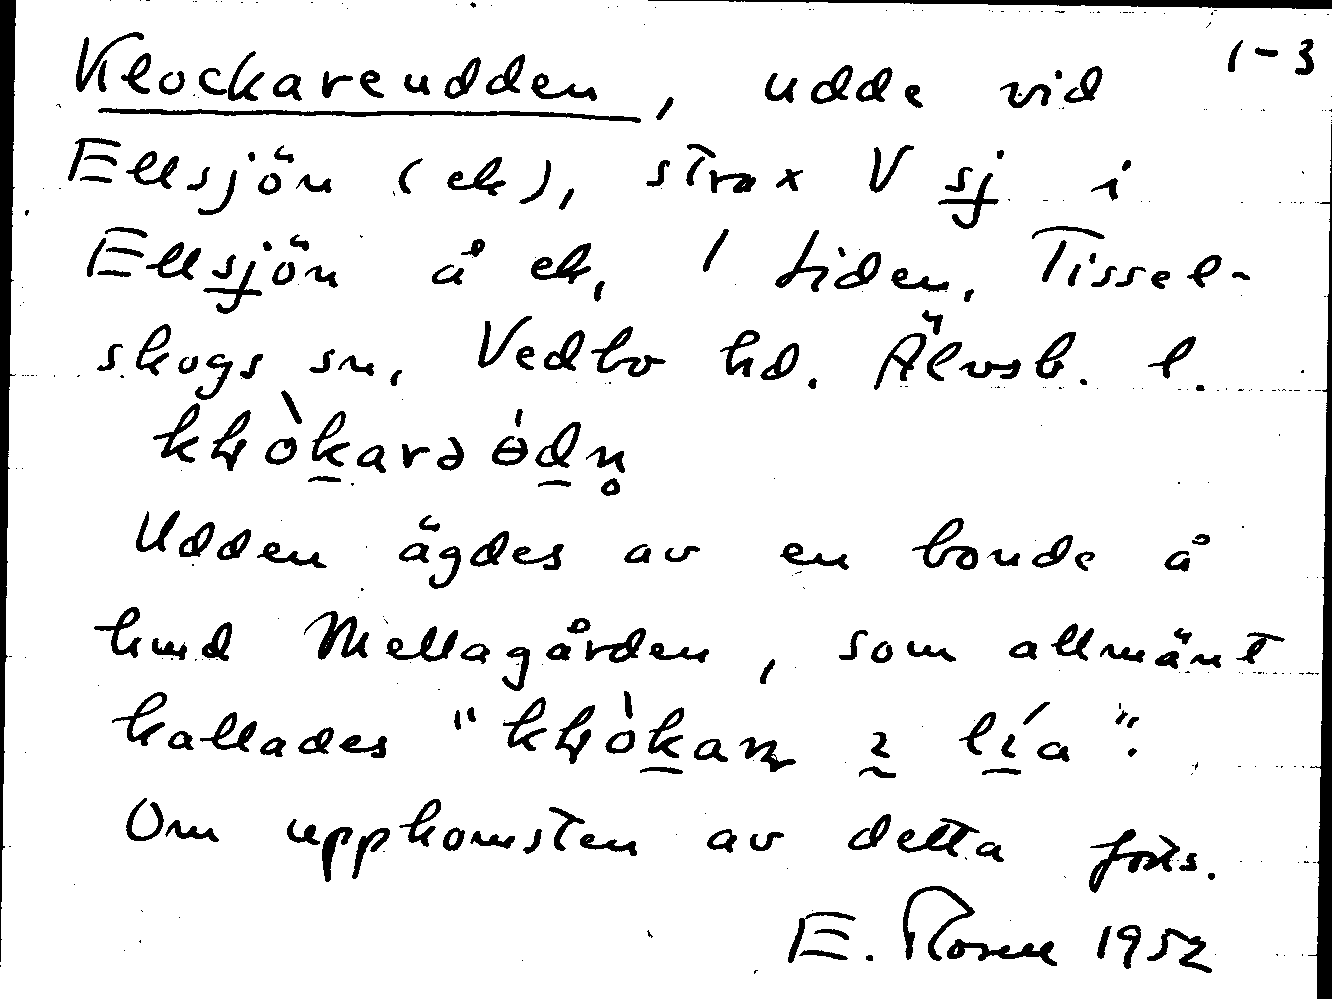 1-3
Klockareudden, udde vid
Ellsjön (ek), strax V sj i
Ellsjön å ek, 1 Liden, Tissel-
skogs sn, Vedbo hd. Älvsb. l.
Udden ägdes av en bonde å
hmd Mellagården, som allmänt
kallades "
Om uppkomsten av detta forts.
E. Rosell 1952